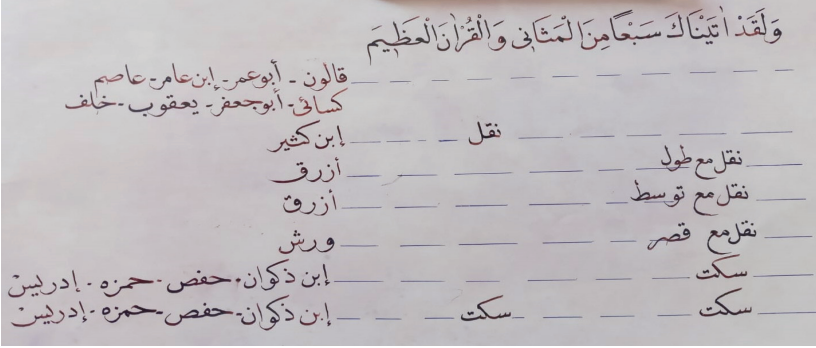 وَلَقَدْ اٰتَيْنَاكَ سَبْعًا مِنَ الْمَثَانِى وَالْقُرْاٰنَ الْعَظِيمَ
قالون - أبو عمر - إبن عامر - عاصم
كسائى - أبو جعفر - يعقوب - خلف
نقل إبن كثير
نقل مع طول أزرق
نقل مع توسط أزرق
نقل مع قصر ورش
سكت إبن ذكوان - حفص - حمزه - إدريس
سكت سكت إبن ذكوان - حفص - حمزه - إدريس